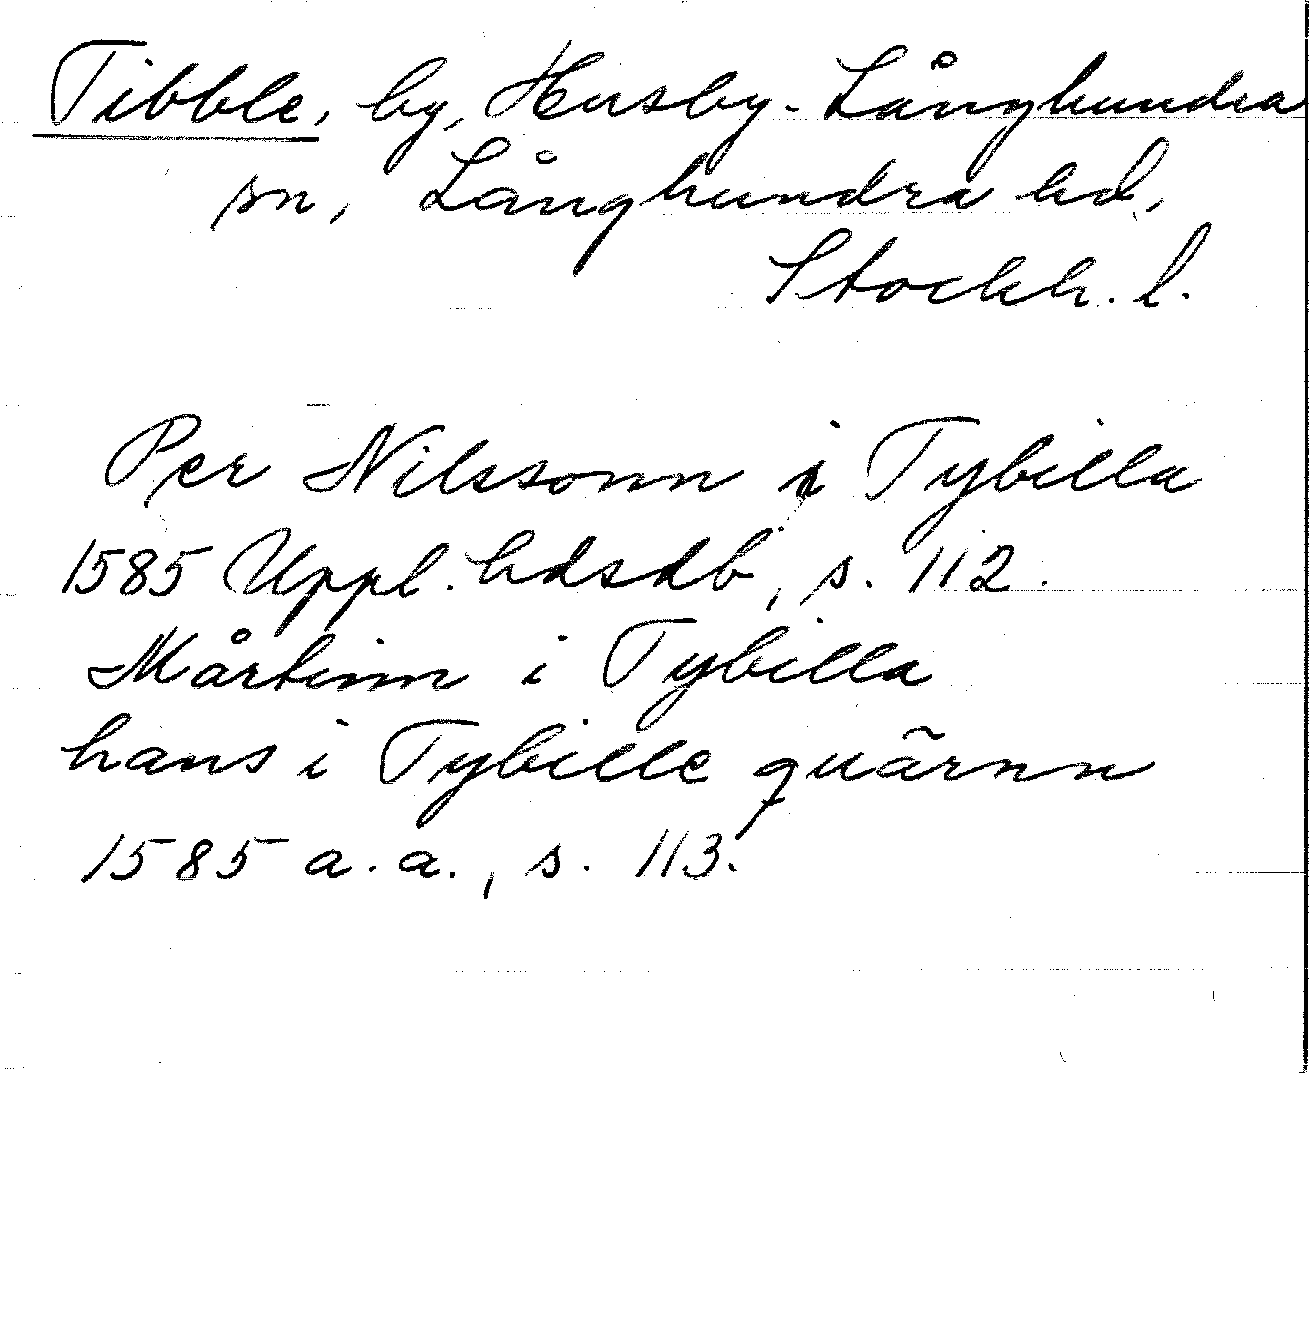 Tibble, by, Husby-Långhundra
sn, Långhundra hd,
Stockh. l.
Per Nilssonn i Tybilla
1585 Uppl. hdsdb, s. 112.
Mårtinn i Tybilla
hans i Tybille quãrnn
1585 a.a., s. 113.